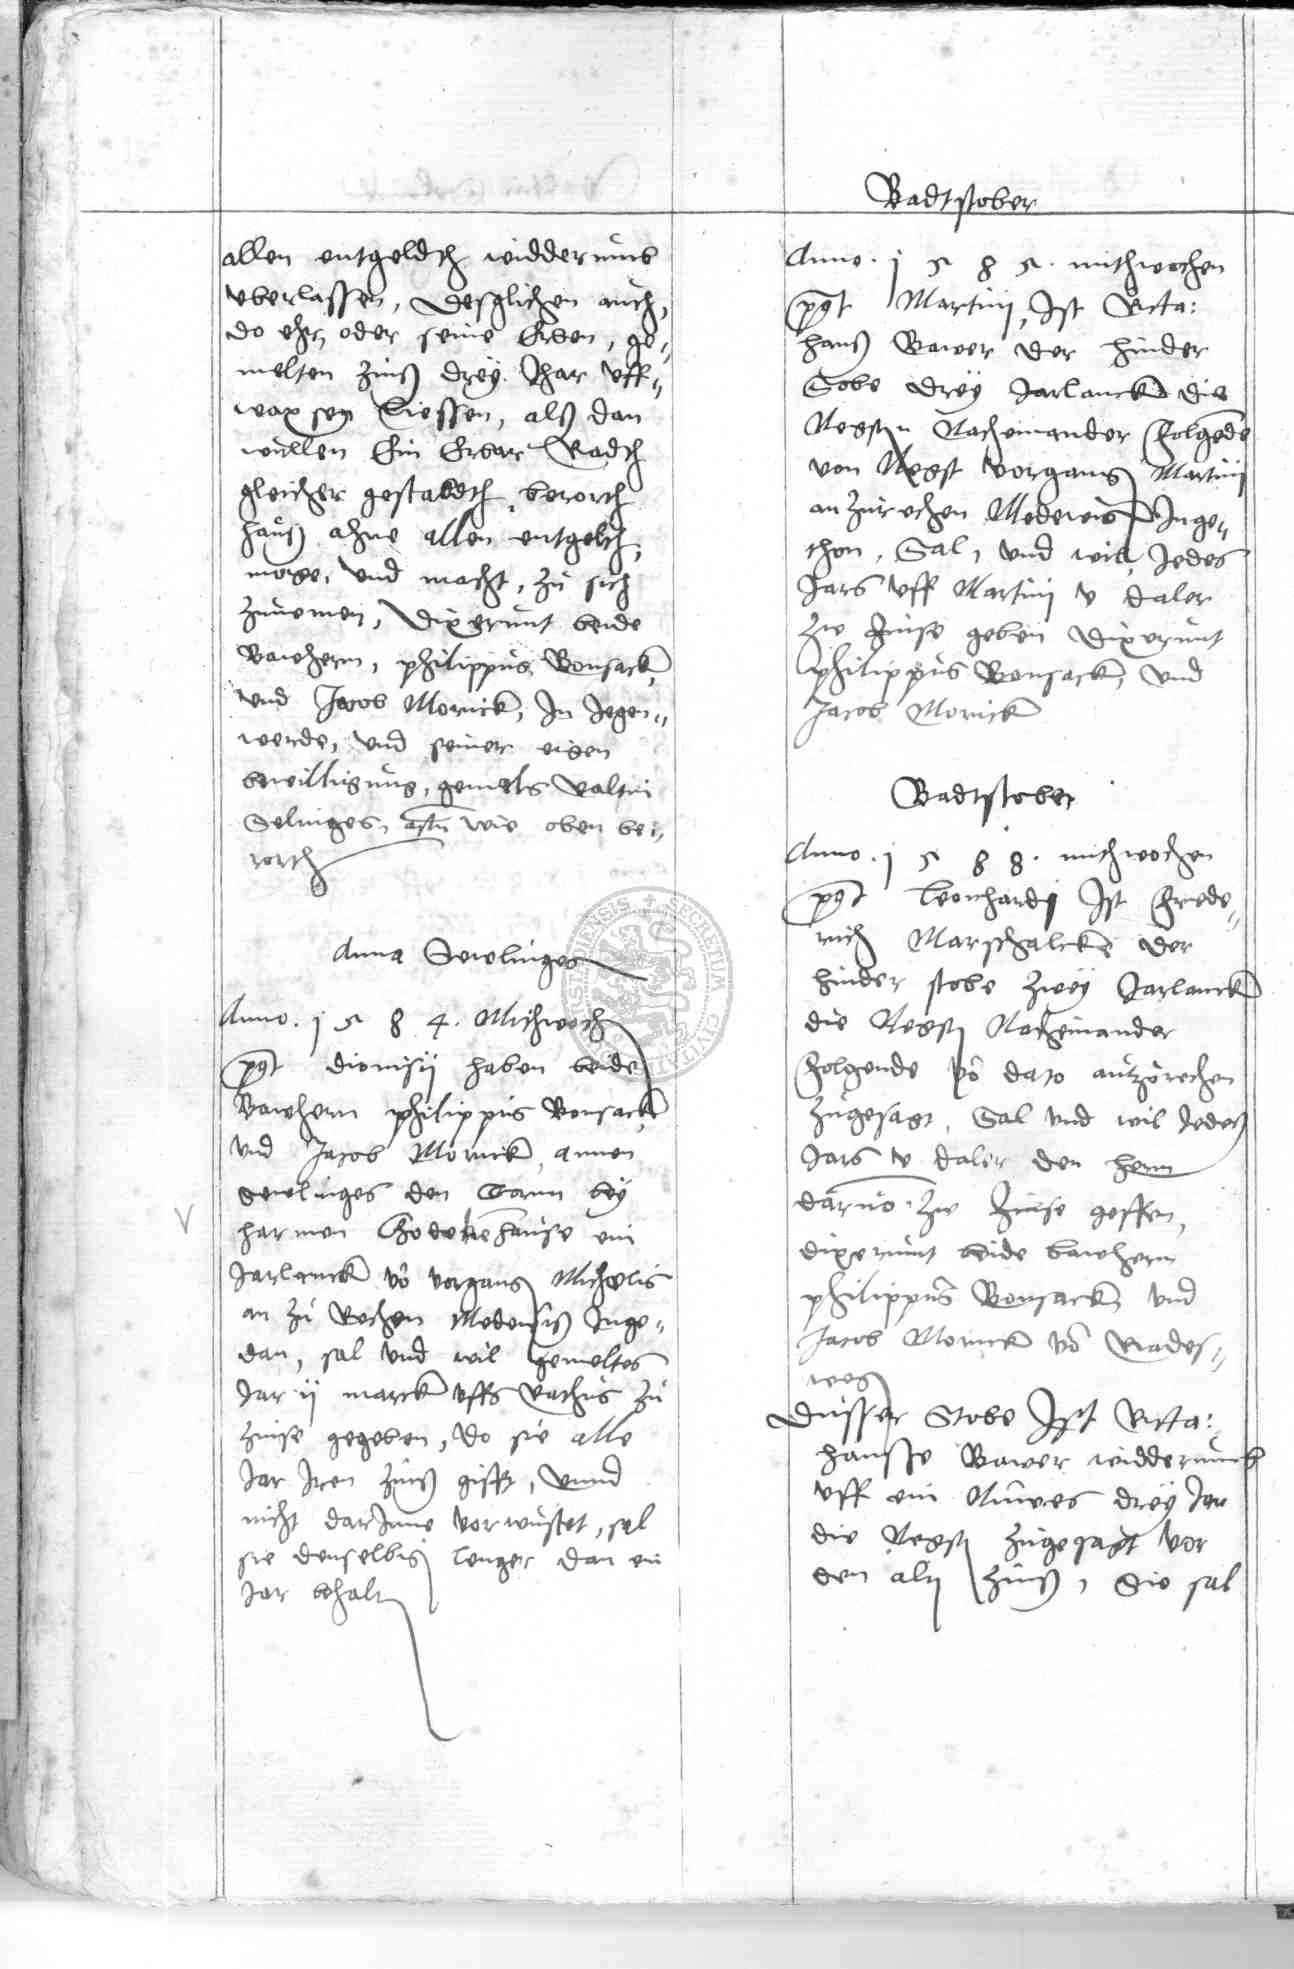 allen entgeldth widderumb
vberlassen, Desglichen auch,
do ehr, oder seine Erben, ge-
melten Zinß drey Jhar vff-
waxsen liessen, alß dan
wullen Ein Erbar Radth
gleicher gestaldth, berorth
hauß ahne allen entgelth,
moge, vnd macht, zu sich
zunemen, Dixerunt beide
Bawhern, philippus Bonsack,
vnd Jacob Mornick, In Jegen-
werde, vnd seiner eigen
bewilligung, gemelts Valtin
Selinges, actu wie oben be-
rorth
Anna Sewlinges
Anno . 1 5 8 4 . Mithwoch
post dionisij haben beide
Bawhern philippus Bonsack
vnd Jacob Mornick, annen
Sewlinges den Torm bey
harmen hause ein
Jarlanck vo vorgang Michelis
an zu Rechen Inge-
dan, sal vnd wil gemeltes
Jar ij marck vffs Rathus zu
Zinse gegeben, do sie alle
Jar Iren Zinß gifft, vnnd
nicht darInne vorwustet, sal
sie denselbig lenger dan ein
Jar behalt
Badtstober
Anno . 1 5 8 5 . mithwochen
post Martinj, Ist
hanß Bawer der hinder
Stobe drey Jarlanck die
Negsten Nacheinander Folgende
von Negst vorgang Martinj
anzurechen Inge-
thon, Sal, vnd wil, Jedes
Jars vff Martinj v daler
Zw Zinse geben Dixerunt
philippus Bonsack, vnd
Jacob Mornick
Badtstober
Anno . 1 5 8 8 . mithwochen
post Leonhardj Ist Frede-
rich Marschalck der
hinder stobe zwey Jarlanck
die Negst Nacheinander
Folgende vo dato antzorechen
zugesagt, Sal vnd wil Jedes
Jars v daler den hern
daruo Zw Zinse geffen,
dixerunt beide bawhern
philippus Bonsack vnd
Jacob Mornick vo Rades-
weg
Dusser Stobe Ist
hansse Bawer widderumb
vff ein Nuwes drey Jar
die Negst zugesagt vor
den alt Zinß, Die sal